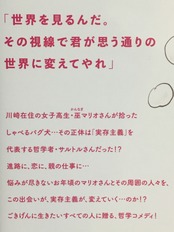 「世界を見るんだ。
その視線で君が思う通りの
世界に変えてやれ」
川崎在住の女子高生・巫マリオさんが拾った
かんなぎ
しゃべるパグ犬…その正体は「実存主義」を
代表する哲学者・サルトルさんだった!?
進路に、恋に、親の仕事に…
悩みが尽きないお年頃のマリオさんとその周囲の人々を、
この出会いが、実存主義が、変えていく…のか!?
ごきげんに生きたいすべての人に贈る、哲学コメディ!